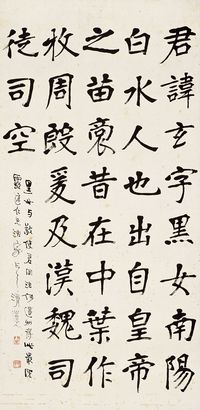 君諱玄字黑女南陽
白水人也出自皇帝
之苗裔昔在中葉作
牧周殷爰及漢魏司
徒司空
黑女与敬使君同法